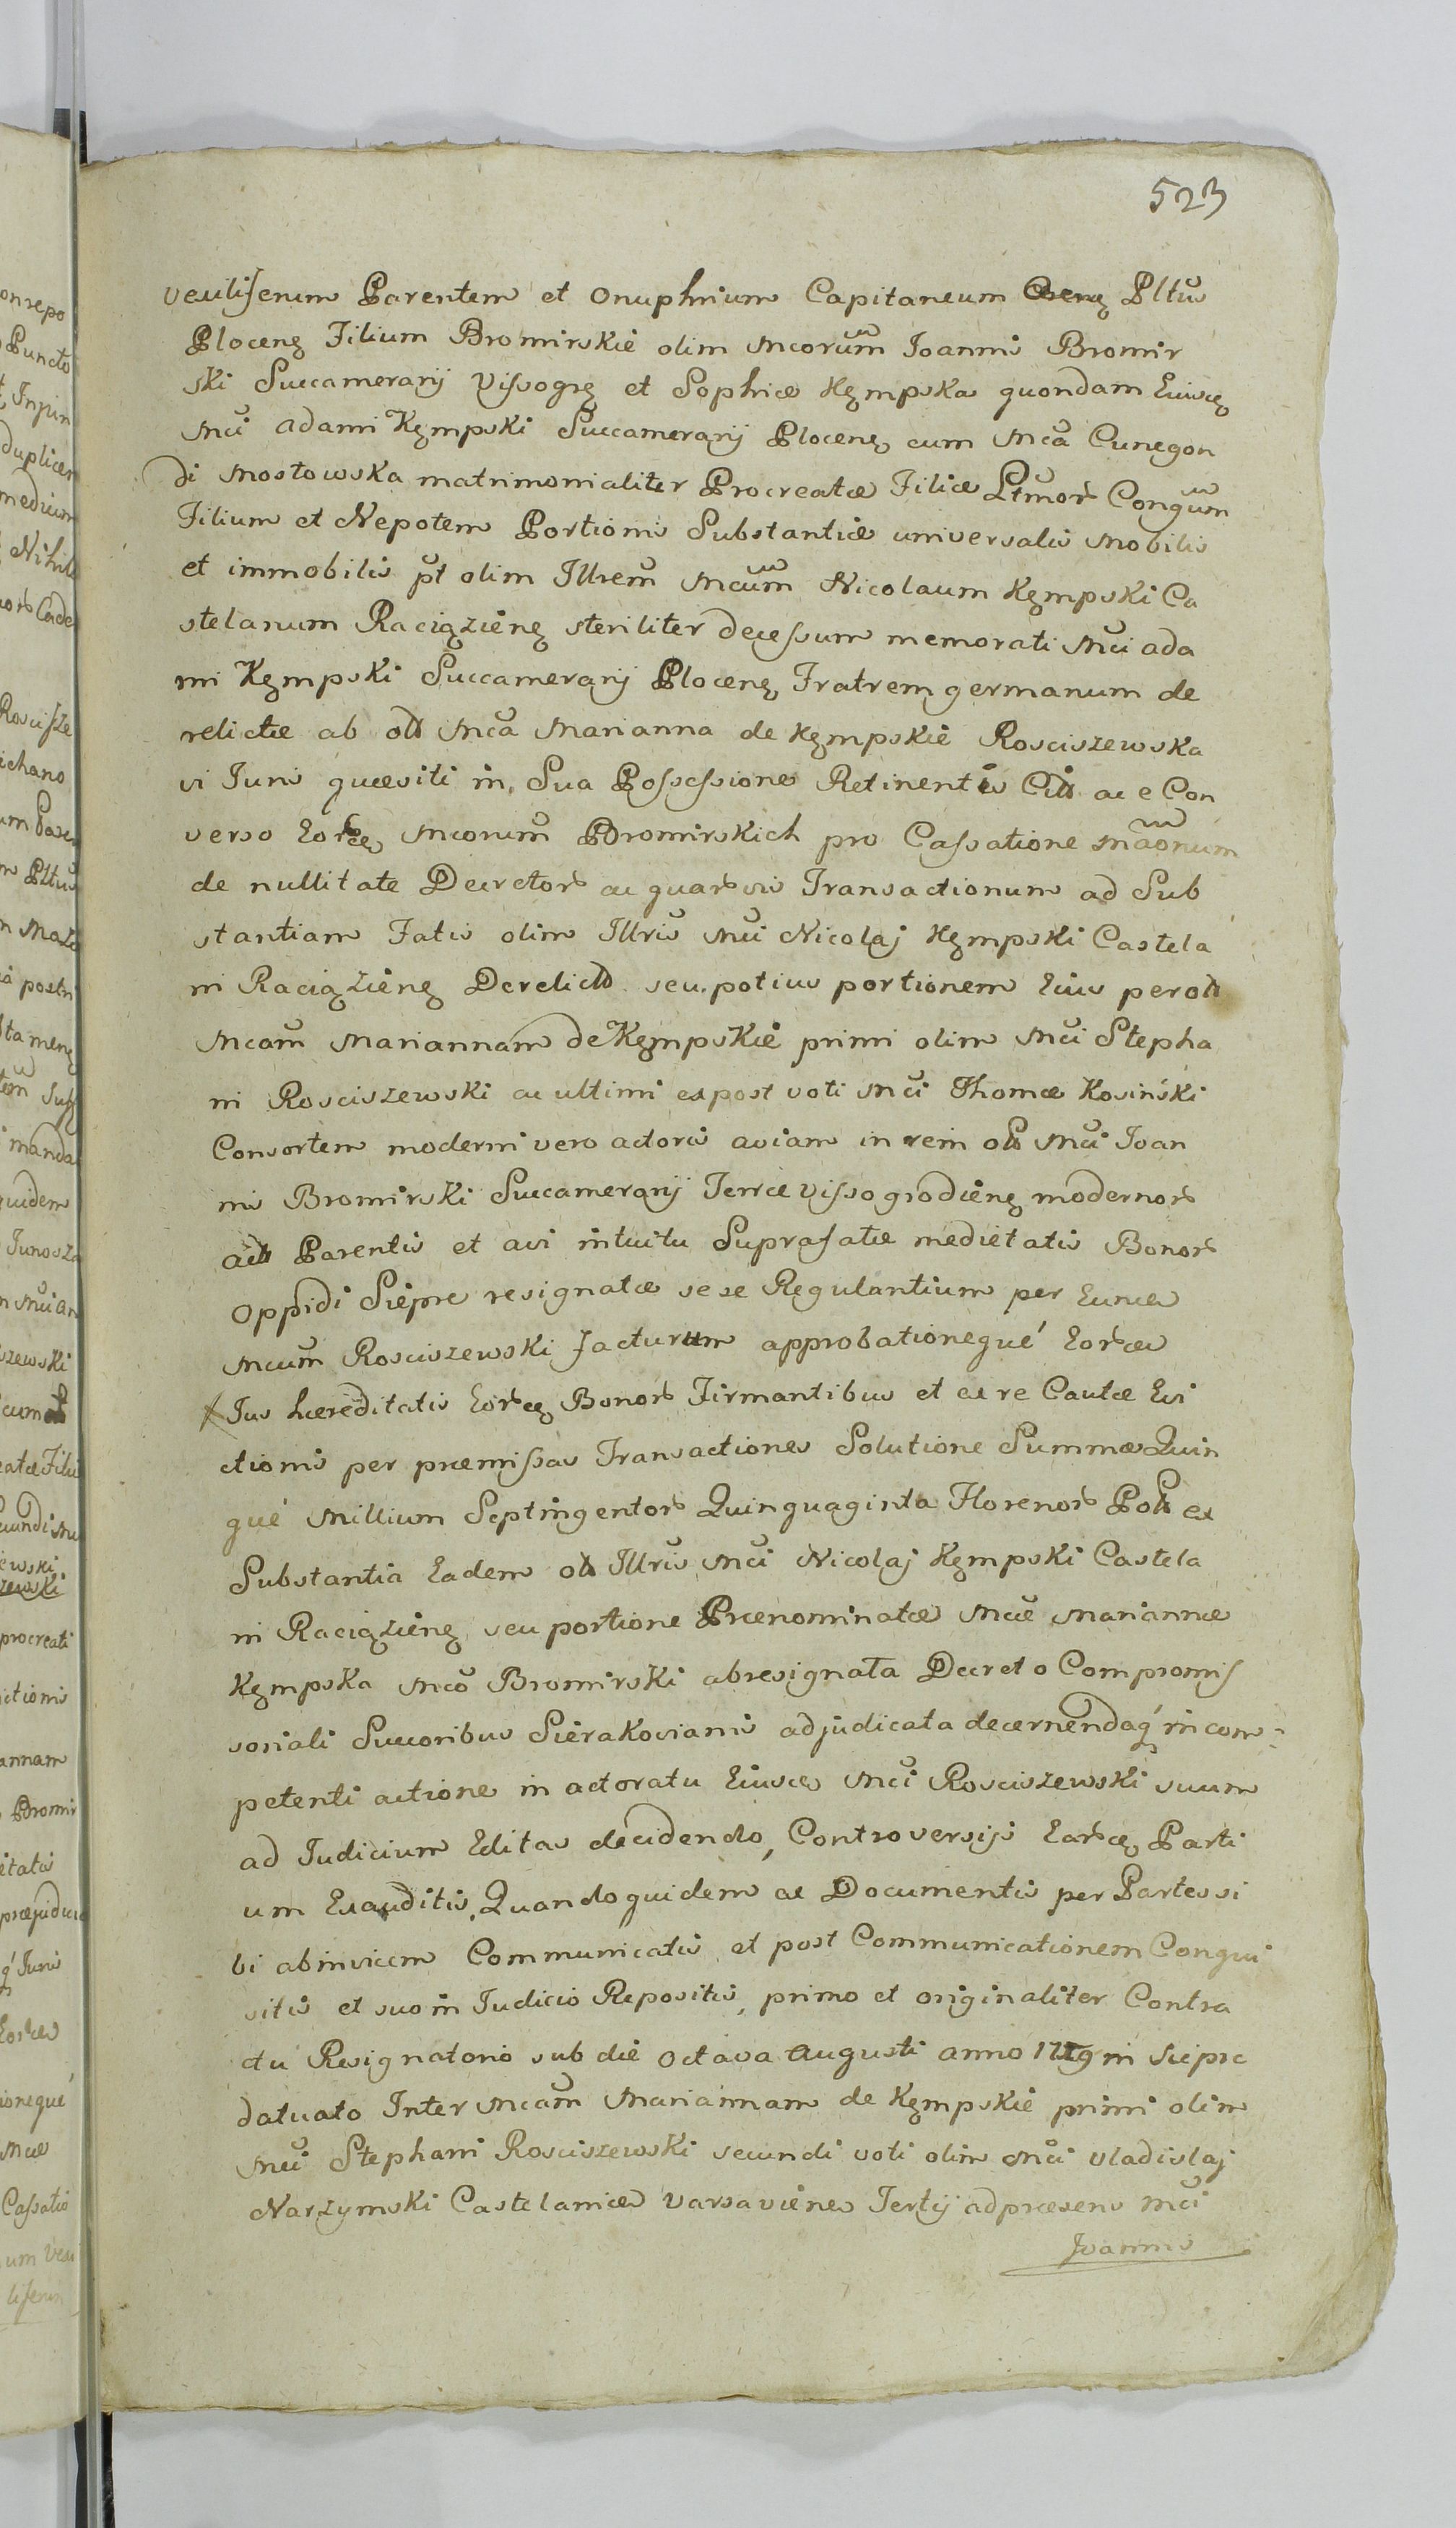 523
vexiliferum Parentem et Onuphrium Capitaneum Pltus
Plocens Filium Bromirskie olim Mcorum̃ Joannis Bromir
ski Succamerarij Vissogrę et Sophiæ Kępska quondam Eiuscę
Mci Adami Kęmpski Succamerarij Plocenę cum Mca Cunegon
di Mostowska matrimonialiter Procreatæ Filiæ Ltmor̃ Congum̃
Filium et Nepotem Portionis Substantiæ universalis Mobilis
et immobilis pt olim Illrem̃ Mcum̃ Nicolaum Kęmpski Ca
stelanum Raciązienę steriliter decessum memorati Mci Ada
mi Kęmpski Succamerarij Plocenę Fratrem germanum de
relictæ ab olt Mca Marianna de Kęmpskie Rosciszewska
vi Juris quæsiti in Sua Possessione Retinentis ac e Con
verso Eorce Mcorum̃ Bromirskich pro Cassatione Mãonum
de nullitate Decretor̃ ac quarvis Transactionum ad Sub
stantiam Fatis olim Illris Mci Nicolaj Kęmpski Castela
ni Raciązienę Derelict seu potius portionem Eius per olt
Mcam̃ Mariannam de Kęmpskie primi olim Mci Stepha
ni Rosciszewski ac ultimi expost voti Mci Thomæ Kosiński
Consortem moderni vero actoris aviam in rem olt Mci Joan
nis Bromirski Succamerarij Terræ Vissogrodienę modernor̃
act Parentis et avi intuitu Suprafatæ medietatis Bonor̃
Oppidi Siepre resignatæ sese Regulantium per Eunce
Mcum̃ Rosciszewski facturum approbationequé Eorce
Jus hæreditatis Eorcę Bonor̃ Firmantibus et ex re Cautæ Evi
ctionis per præmissas Transactiones Solutione Summæ Quin
qué Millium Septingentor̃ Quinquaginta Florenor̃ Polt ex
Substantia Eadem olt Illris Mci Nicolaj Kęmpski Castela
ni Raciązienę seu portione Prænominatæ Mcæ Mariannæ
Kęmpska Mco Bromirski abresignata Decreto Compromis
soriali Succoribus Sierakovianis adjudicata decernendaq́ in com
petenti actione in actoratu Eiusce Mci Rosciszewski suum
ad Judicium Editas decidendo, Controversijs Earcę Parti
um Exauditis, Quandoquidem ac Documentis per Partes si
bi abinvicem Communicatis et post Communicationem Conqui
sitis et suo in Judicio Repositis, primo et originaliter Contra
ctu Resignatorio sub die Octava Augusti anno in Siepre
datuato Inter Mcam̃ Mariannam de Kęmpskie primi olim
Mci Stephani Rosciszewski secundi voti olim Mci Vladislaj
Narzymski Castelanicæ Varsaviens Tertij ad præsens Mci
Joannis